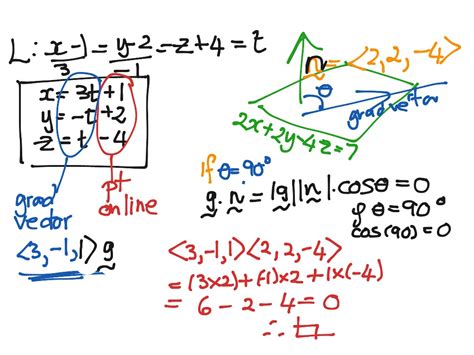 L: x-1/3 = y-2/-1 = z+4 = t
x = 3t+1
y = -t+2
z = t-4
grad vector
pt on line
<3,-1,1> g
n = <2,2,-4>
θ
grad vector
2x+2y-4z=7
If θ=90°
g.n = |g||n|.cosθ = 0
θ=90°
cos(90)=0
<3,-1,1><2,2,-4>
= (3x2)+(-1)x2+1x(-4)
= 6-2-4=0
∴